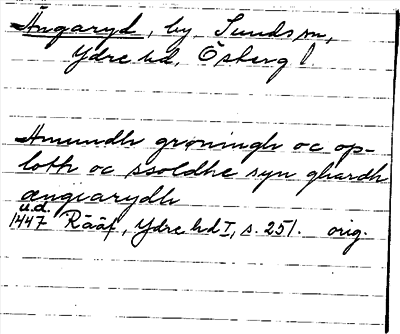 Ängaryd, by, Sunds sn,
Ydre hd, Östergl.
Amundh grøningh oc op-
loth oc ssoldhe syn ghardh
ængiarydh
u.d.
1447 Rääf, Ydre hd I, s. 251. orig.